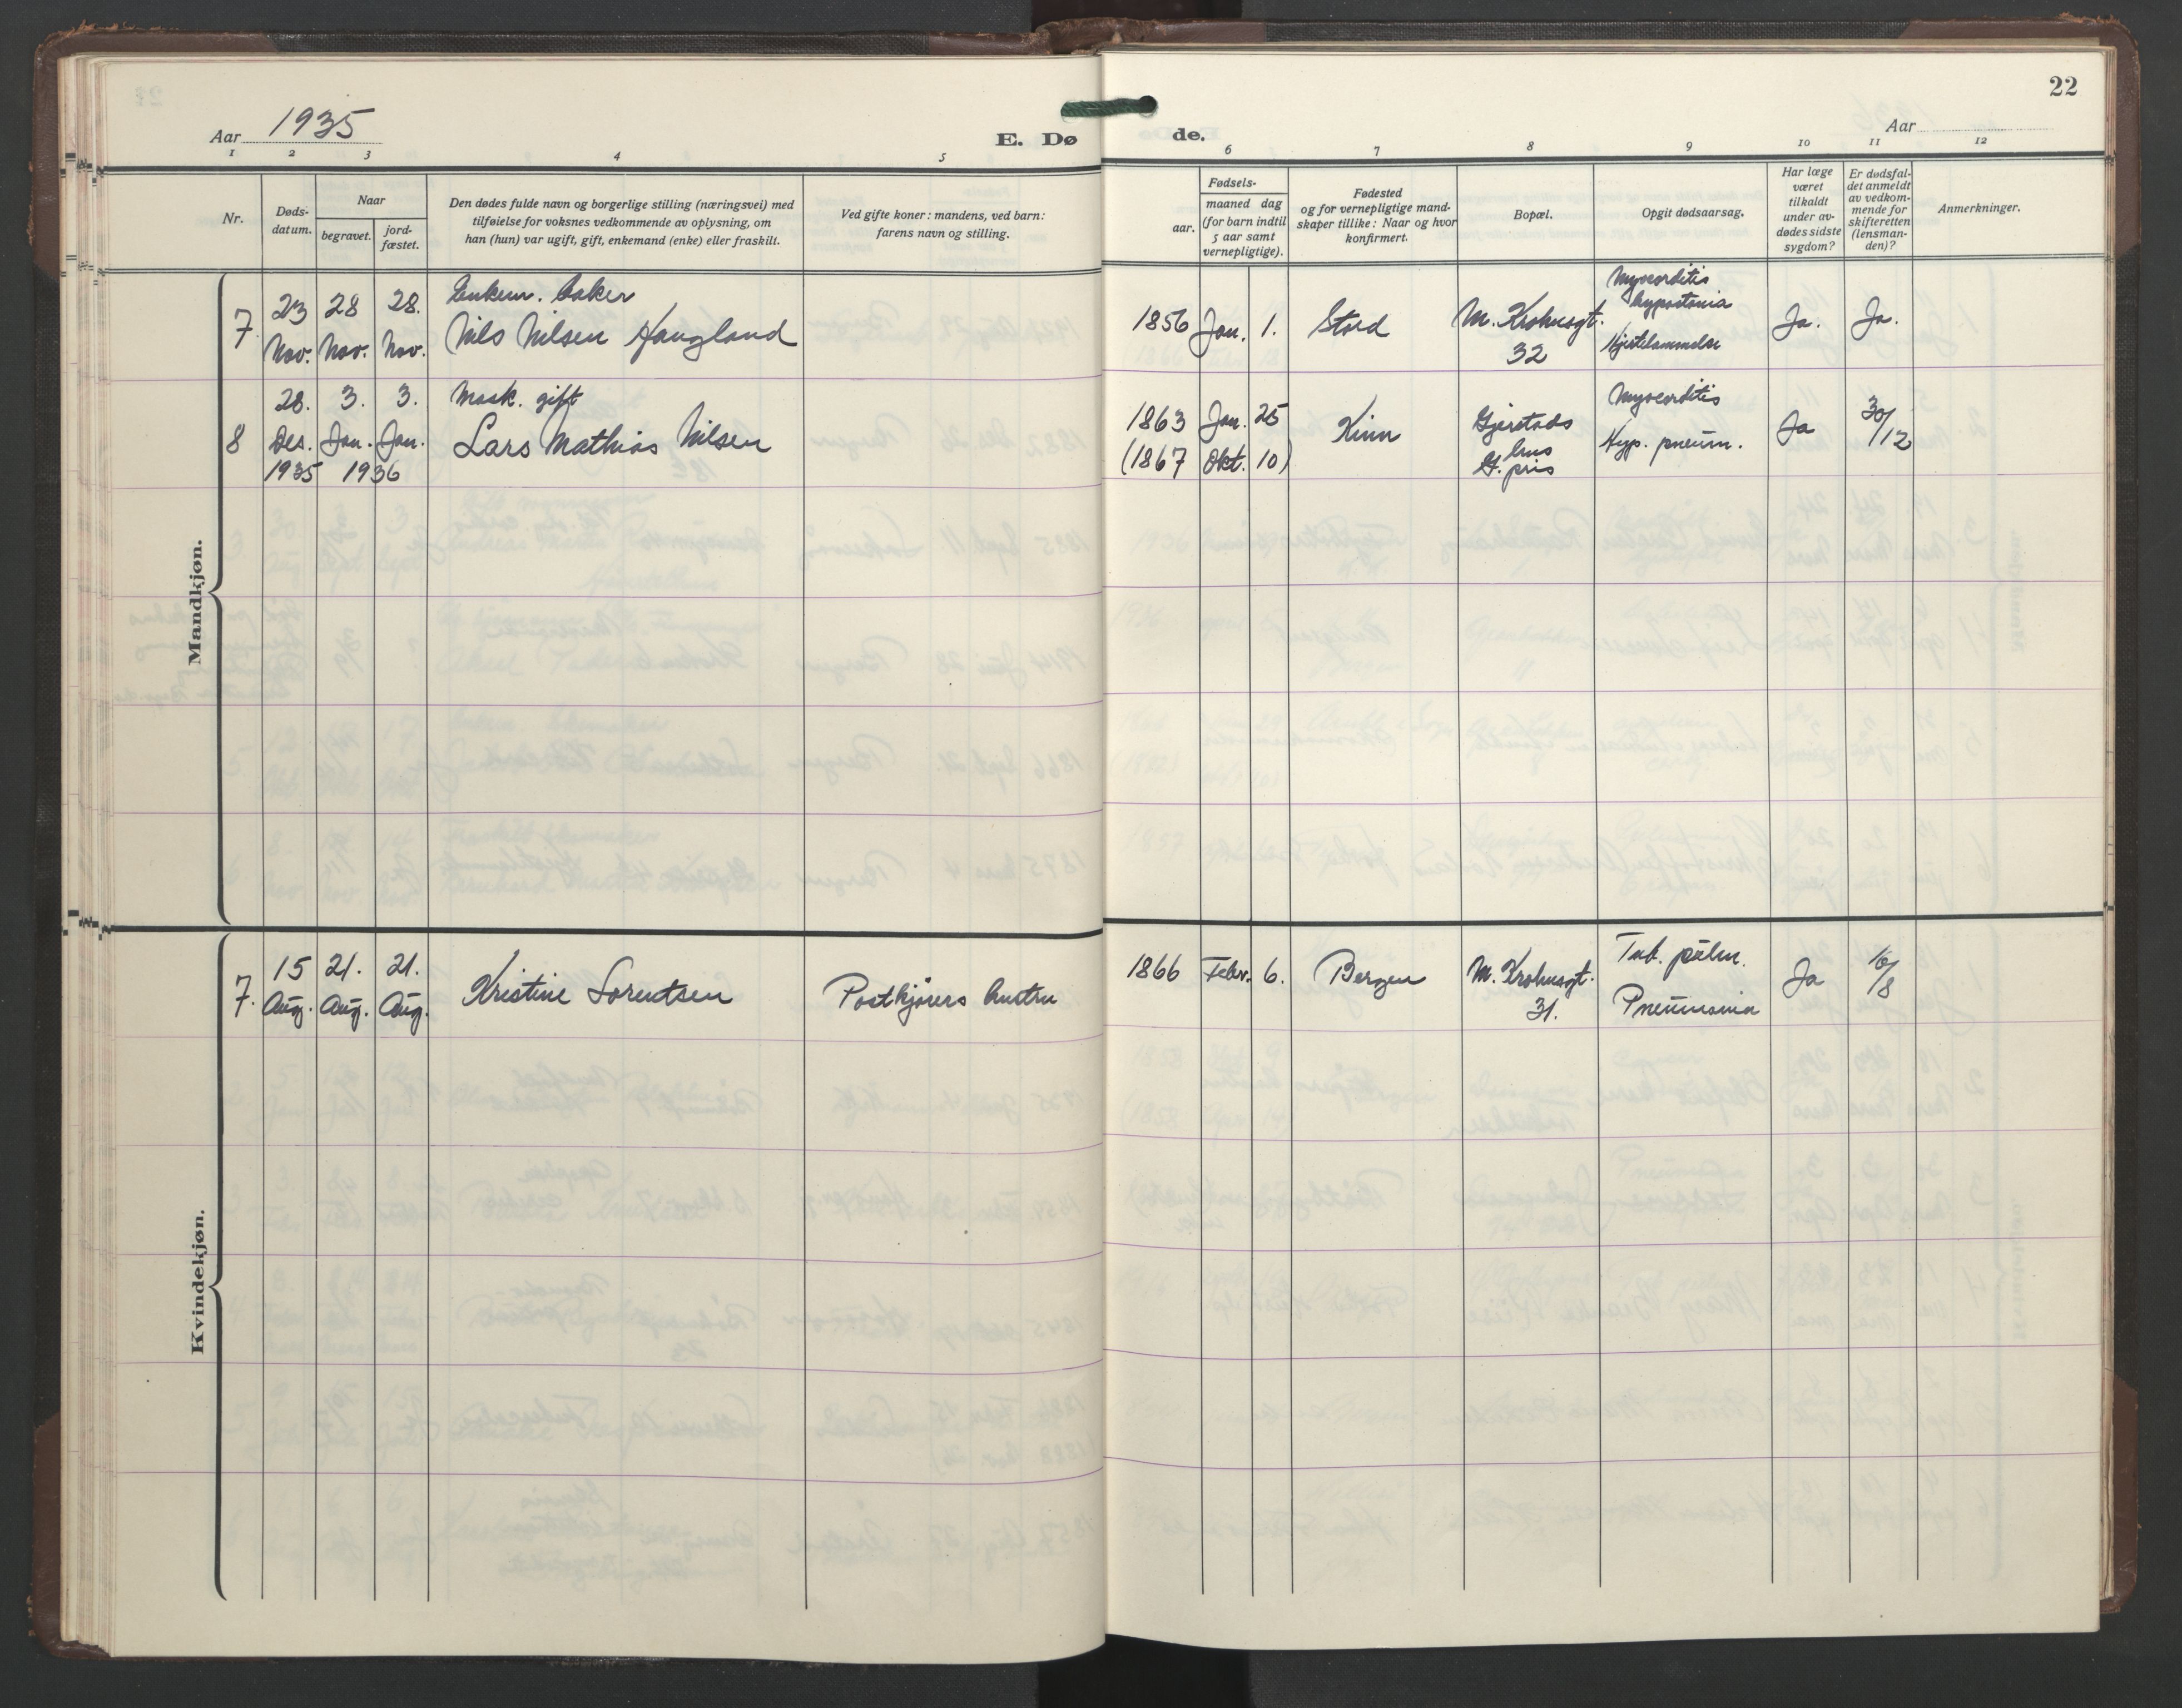 22
Aar 1935
E. Dø
de.
Aar
1 2 3 4 5 6 7 8 9 10 11 12
Nr.
Døds-
datum.
Naar
begravet.
jord-
fæstet.
Den dødes fulde navn og borgerlige stilling (næringsvei) med
tilføielse for voksnes vedkommende av oplysning, om
han (hun) var ugift, gift, enkemand (enke) eller fraskilt.
Ved gifte koner: mandens, ved barn:
farens navn og stilling.
Fødsels-
aar.
maaned dag
(for barn indtil
5 aar samt
vernepligtige).
Fødested
og for vernepligtige mand-
skaper tillike: Naar og hvor
konfirmert.
Bopæl.
Opgit dødsaarsag.
Har læge
været
tilkaldt
under av-
dødes sidste
sygdom?
Er dødsfal-
det anmeldt
av vedkom-
mende for
skifteretten
(lensman-
den)?
Anmerkninger.
Mandkjøn.
7
23 Nov.
28 Nov.
28. Nov.
Enkem. baker
Nils Nilsen Haugland
1856 Jan. 1.
Stord
M. Krohnsgt.
32
Myocarditis
hypostasia
Hjertelammelse
Ja.
Ja.
8
28. Des. 1935
3. Jan.
3. Jan.
1936
Mask. gift
Lars Mathias Nilsen
1863 Jan. 25
(1867 Okt. 10)
Kinn
Gjerstads
hus
G. pris
Myocarditis
Hyp. pneum.
Ja
30/12
Kvindekjøn.
7.
15 Aug.
21. Aug.
21. Aug.
Kristine Lorentsen
Postkjørers hustru
1866 Febr. 6.
Bergen
M. Krohnsgt.
31.
Tub. pulm.
Pneumonia
Ja
16/8